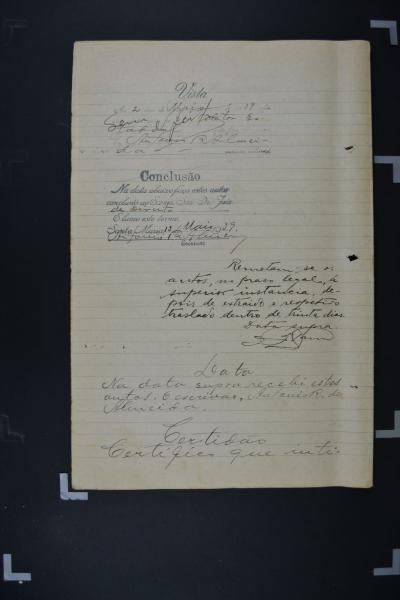 Vista
Conclusão
Na data abaixo faço estes autos
conclusos ao Exmo. Snr. Dr. Juiz
de Direito
E lavro este termo.
Santa Maria 13 de Maio 29.
Escrivão
Remetam-se os
autos, no praso legal, á
superior instancia, de-
pois de extraido o respectivo
traslado dentro de trinta dias.
Data supra.
Data
Na data supra recebi estes
autos. O escrivão, Antonio R. de
Almeida.
Certidão
Certifico que inti-